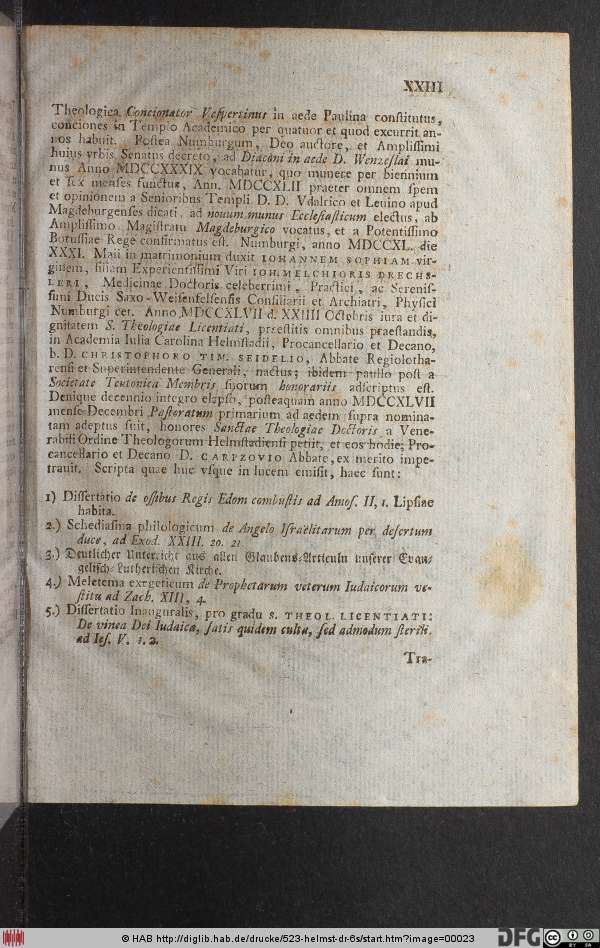 XXIII
Theologica. Concionator Veſpertinus in aede Paulina conſtitutus,
conciones in Templo Academico per quatuor et quod excurrit an-
nos habuit. Poſtea Numburgum, Deo auctore, et Ampliſſimi
huius vrbis Senatus decreto, ad Diaconi in aede D. Wenzeslai mu-
nus Anno MDCCXXXIX vocabatur, quo munere per biennium
et ſex menſes functus, Ann. MDCCXLII praeter omnem ſpem
et opinionem a Senioribus Templi D. D. Vdalrico et Leuino apud
Magdeburgenſes dicati, ad nouum munus Eccleſiaſticum electus, ab
Ampliſſimo Magiſtratu Magdeburgico vocatus, et a Potentiſſimo
Boruſſiae Rege confirmatus eſt. Numburgi, anno MDCCXL. die
XXXI. Maii in matrimonium duxit IOHANNEM SOPHIAM vir-
ginem, filiam Experientiſſimi Viri IOH. MELCHIORIS DRECHS-
LERI, Medicinae Doctoris celeberrimi, Practici, ac Sereniſ-
ſimi Ducis Saxo-Weiſenfelſenſis Conſiliarii et Archiatri, Phyſici
Numburgi cet. Anno MDCCXLVII d. XXIIII Octobris iura et di-
gnitatem S. Theologiae Licentiati, praeſtitis omnibus praeſtandis,
in Academia Iulia Carolina Helmſtadii, Procancellario et Decano,
b. D. CHRISTOPHORO TIM. SEIDELIO, Abbate Regiolotha-
renſi et Superintendente Generali, nactus; ibidem paullo poſt a
Societate Teutonica Membris ſuorum honorariis adſcriptus eſt.
Denique decennio integro elapſo, poſteaquam anno MDCCXLVII
menſe Decembri Paſtoratum primarium ad aedem ſupra nomina-
tam adeptus fuit, honores Sanctae Theologiae Doctoris a Vene-
rabili Ordine Theologorum Helmſtadienſi petiit, et eos hodie, Pro-
cancellario et Decano D. CARPZOVIO Abbate, ex merito impe-
trauit. Scripta quae huc vſque in lucem emiſit, haec ſunt:
1) Diſſertatio de oſſibus Regis Edom combuſtis ad Amoſ. II, 1. Lipſiae
habita.
2.) Schediaſma philologicum de Angelo Iſraelitarum per deſertum
duce, ad Exod. XXIII. 20. 21
3.) Deutlicher Unterricht aus allen Glaubens-Articuln unſerer Evan-
geliſch-Lutheriſchen Kirche.
4.) Meletema exegeticum de Prophetarum veterum Iudaicorum ve-
ſtitu ad Zach. XIII, 4.
5.) Diſſertatio Inauguralis, pro gradu S. THEOL. LICENTIATI:
De vinea Dei Iudaica, ſatis quidem culta, ſed admodum ſterili.
ad Ieſ. V. 1. 2.
Tra-
© HAB http://diglib.hab.de/drucke/523-helmst-dr-6s/start.htm?image=00023
DFG
BY SA